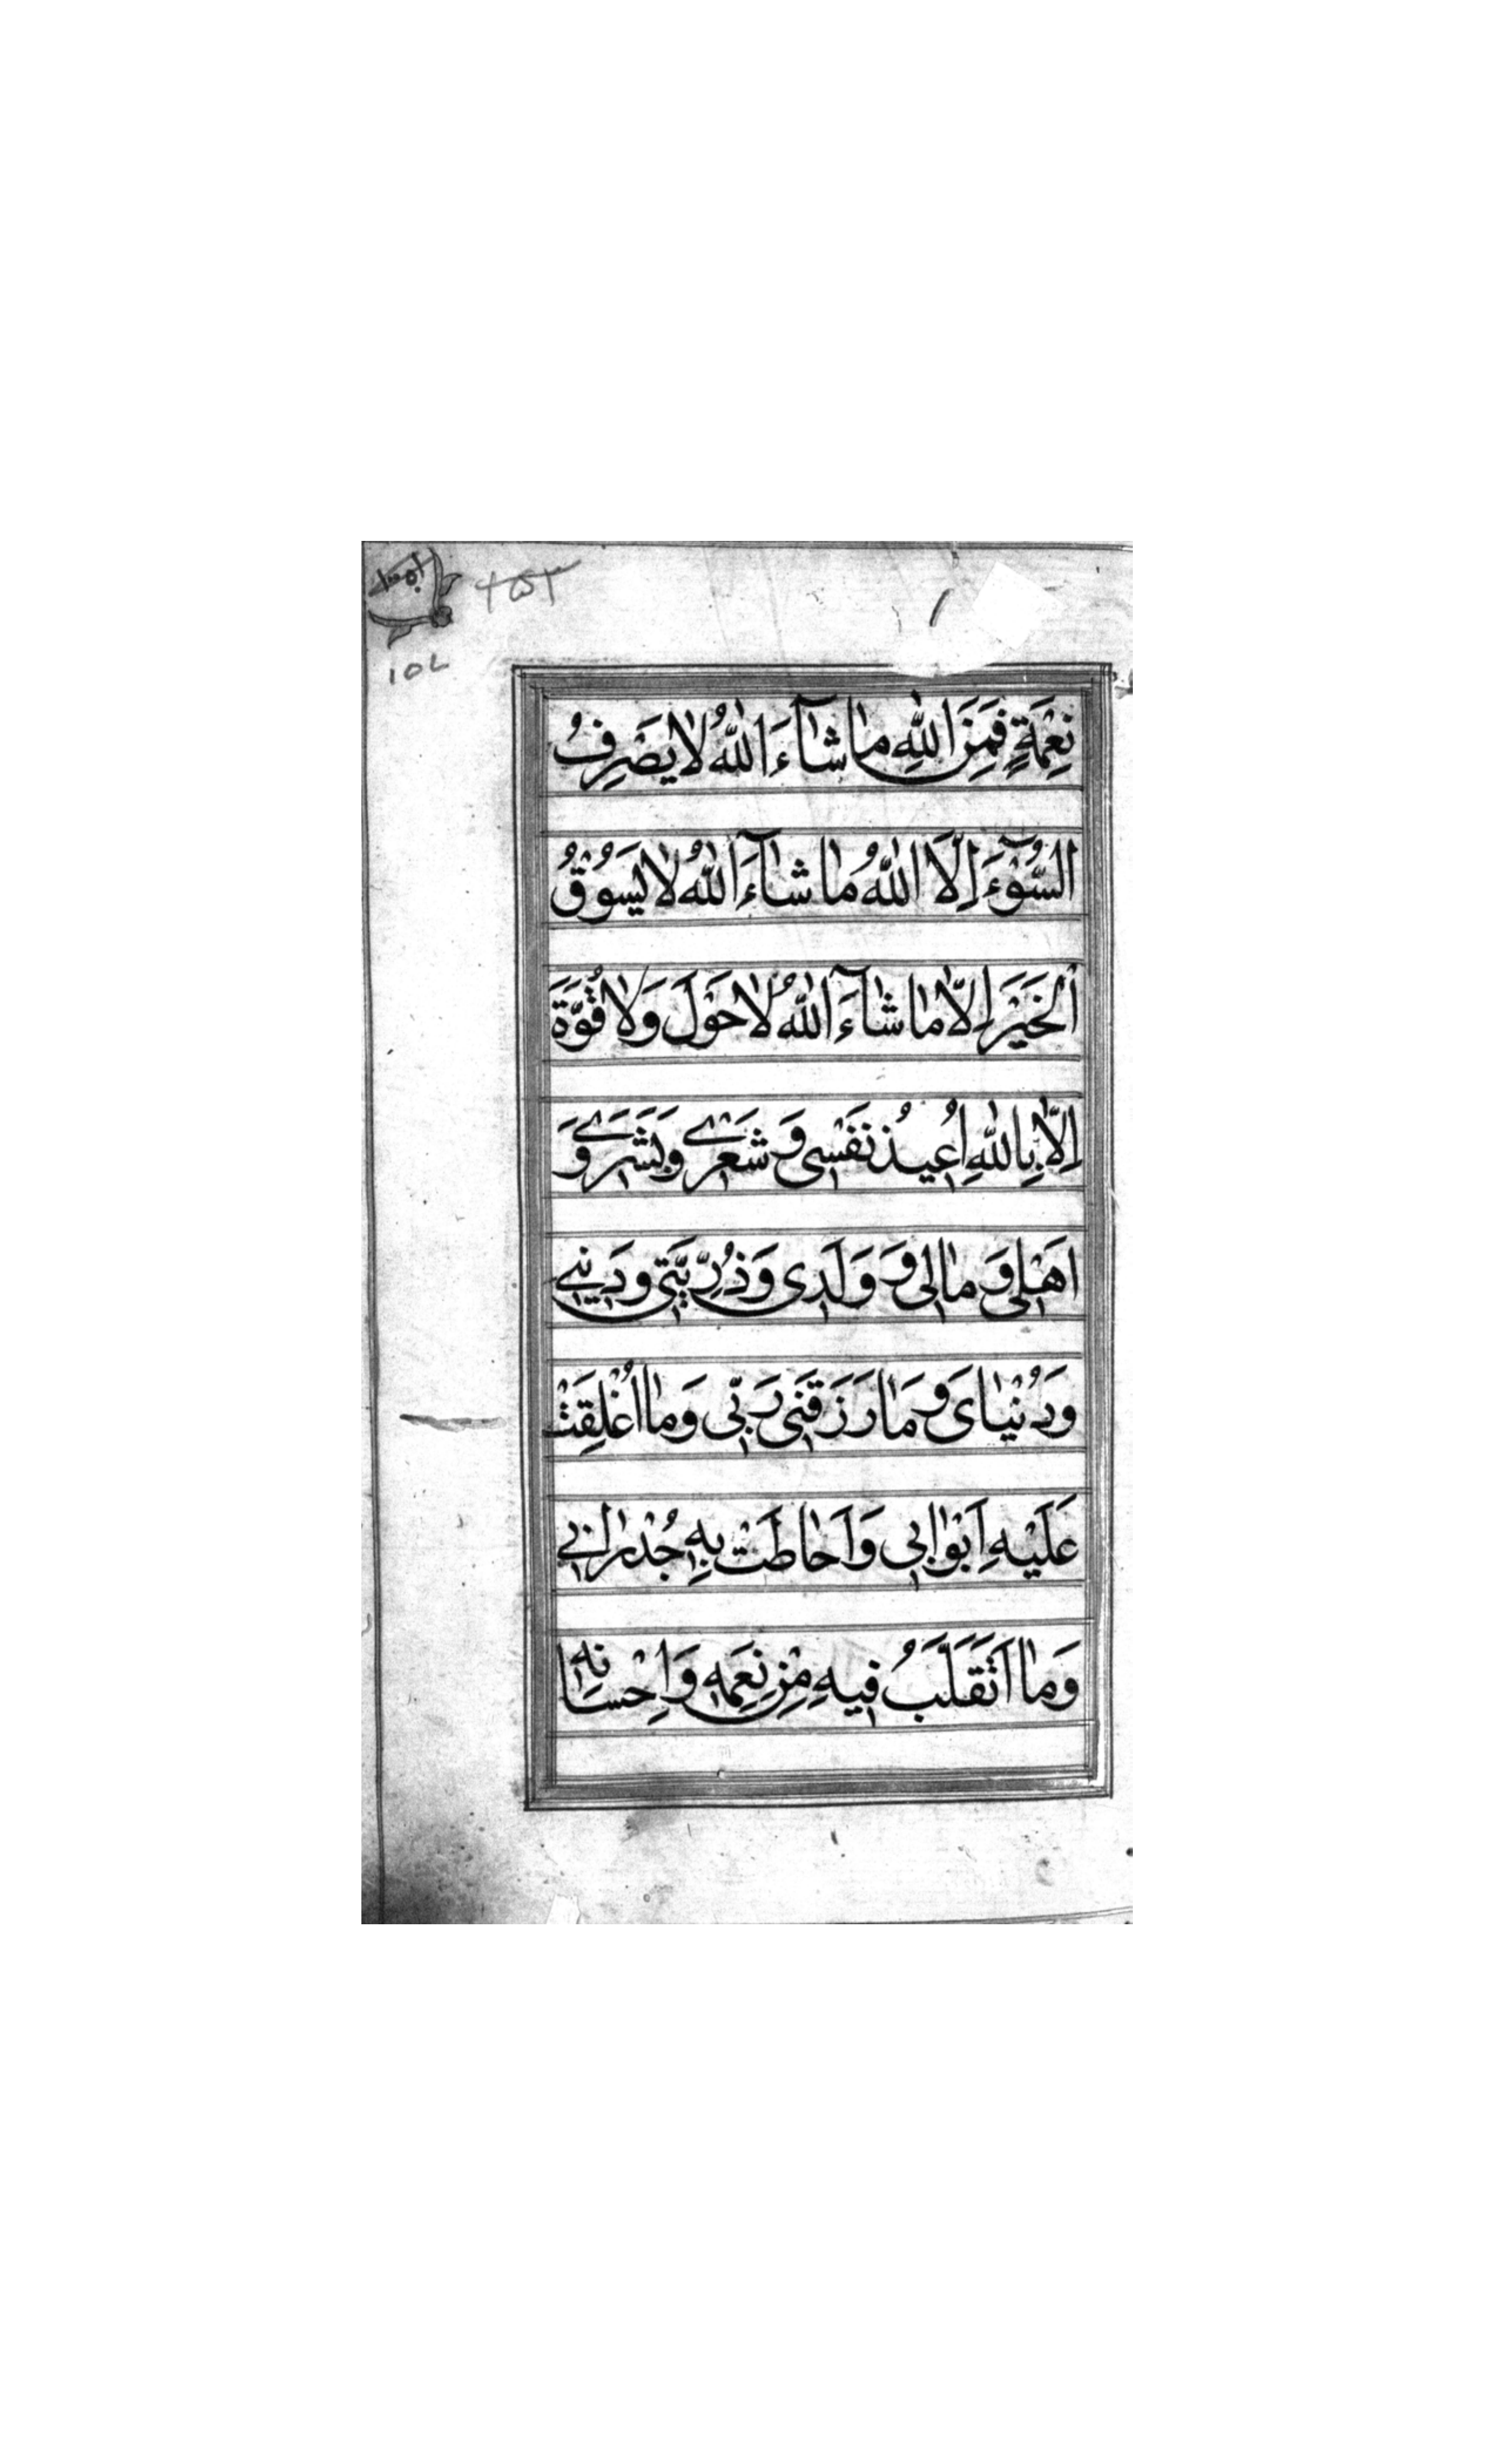 ۲۵۳
۱۵۲
نِعْمَةٍ فَمِنَ اللّٰهِ مٰا شٰآءَ اللّٰهُ لٰا يَصْرِفُ
السُّوٓءَ اِلَّا اللّٰهُ مٰا شٰآءَ اللّٰهُ لٰا يَسُوْقُ
الْخَيْرَ اِلّٰا مٰا شٰآءَ اللّٰهُ لٰا حَوْلَ وَلٰا قُوَّةَ
اِلّٰا بِاللّٰهِ اُعِيذُ نَفْسِى وَ شَعْرِى وَبَشَرِى وَ
اَهْلِى وَ مٰالِى وَ وَلَدِى وَذُرِّيَّتِى وَدِينِى
وَدُنْيٰاىَ وَ مٰا رَزَقَنِى رَبِّى وَمٰا اُغْلِقَتْ
عَلَيْهِ اَبْوٰابِى وَاَحٰاطَتْ بِهِ جُدْرٰانِى
وَمٰا اَتَقَلَّبُ فِيهِ مِنْ نِعَمِهِ وَاِحْسٰانِهِ